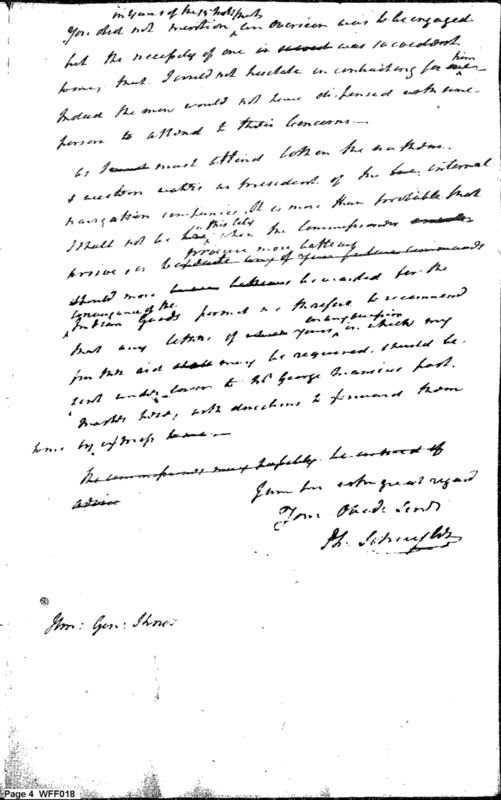 in yours of the 19 Inst; that
You did not mention, an overseer was to be engaged
but the necessity of one was so evident
to me, that I could not hesitate in contracting for him
Indeed the men would not have dispensed with some
person to attend to their Concerns—
as I must attend both on the northern
& western waters as president of the two internal
navigation companies, It is more than probable that
I shall not be in this City when the Commissioners
arrive or to procure more batteaux
should more be wanted for the
Conveyance of the
Indian Goods permit me therefore to recommend
that any letters of yours in which my
further aid may be required, should be
sent under cover to Mr George Mancius post
master here, with directions to forward them
to me by express
be
I am Sir with great regard
Your Obedt Servt
Ph. Schuyler
Hon: Gen: Knox:
Page 4 WFF018